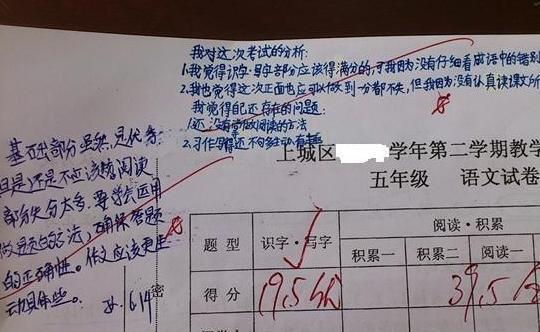 我对这次考试的分析:
1.我觉得识字·写字部分应该得满分的,可我因为没有仔细看成语中的错别
2.我也觉得这次正面也应可以做到一分都不失,但我因没有认真读课文所
我觉得自己还存在的问题:
1.还没有掌做阅读的方法
2.习作写得还不够生动有趣
上城区 学年第二学期教学
五年级 语文试卷
基础部分虽然是优秀,
但是还是不应该的阅读
部分失分太多。要学会运用
做题的方法,确保答题
的正确性。作文应该更生
动具体些。 6.14
密
题 型 识字·写字 阅读·积累
积累一 积累二 阅读一
得 分 19.5 39.5